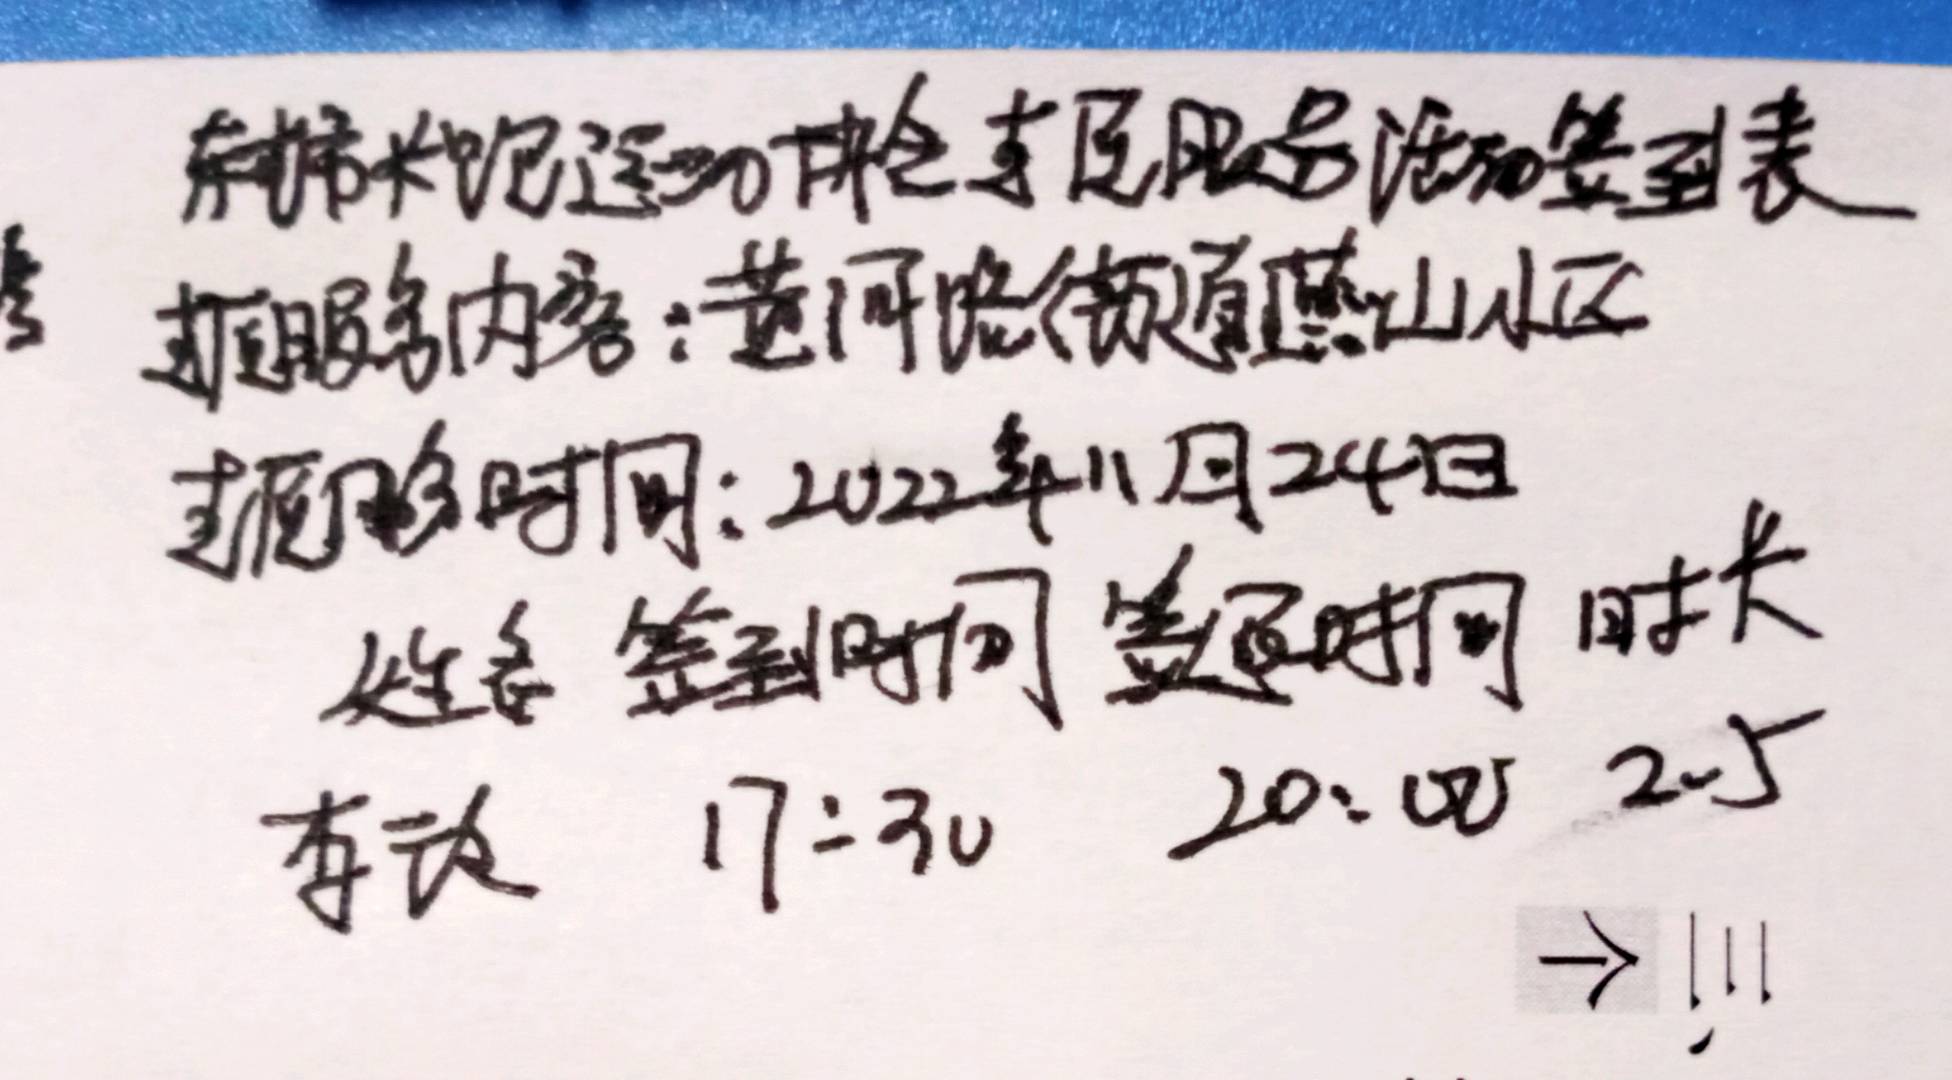 东营市长跑运动协会志愿服务活动签到表
志愿服务内容：黄河路街道燕山小区
志愿服务时间：2022年11月24日
姓名 签到时间 签退时间 时长
17:30 20:00 2.5